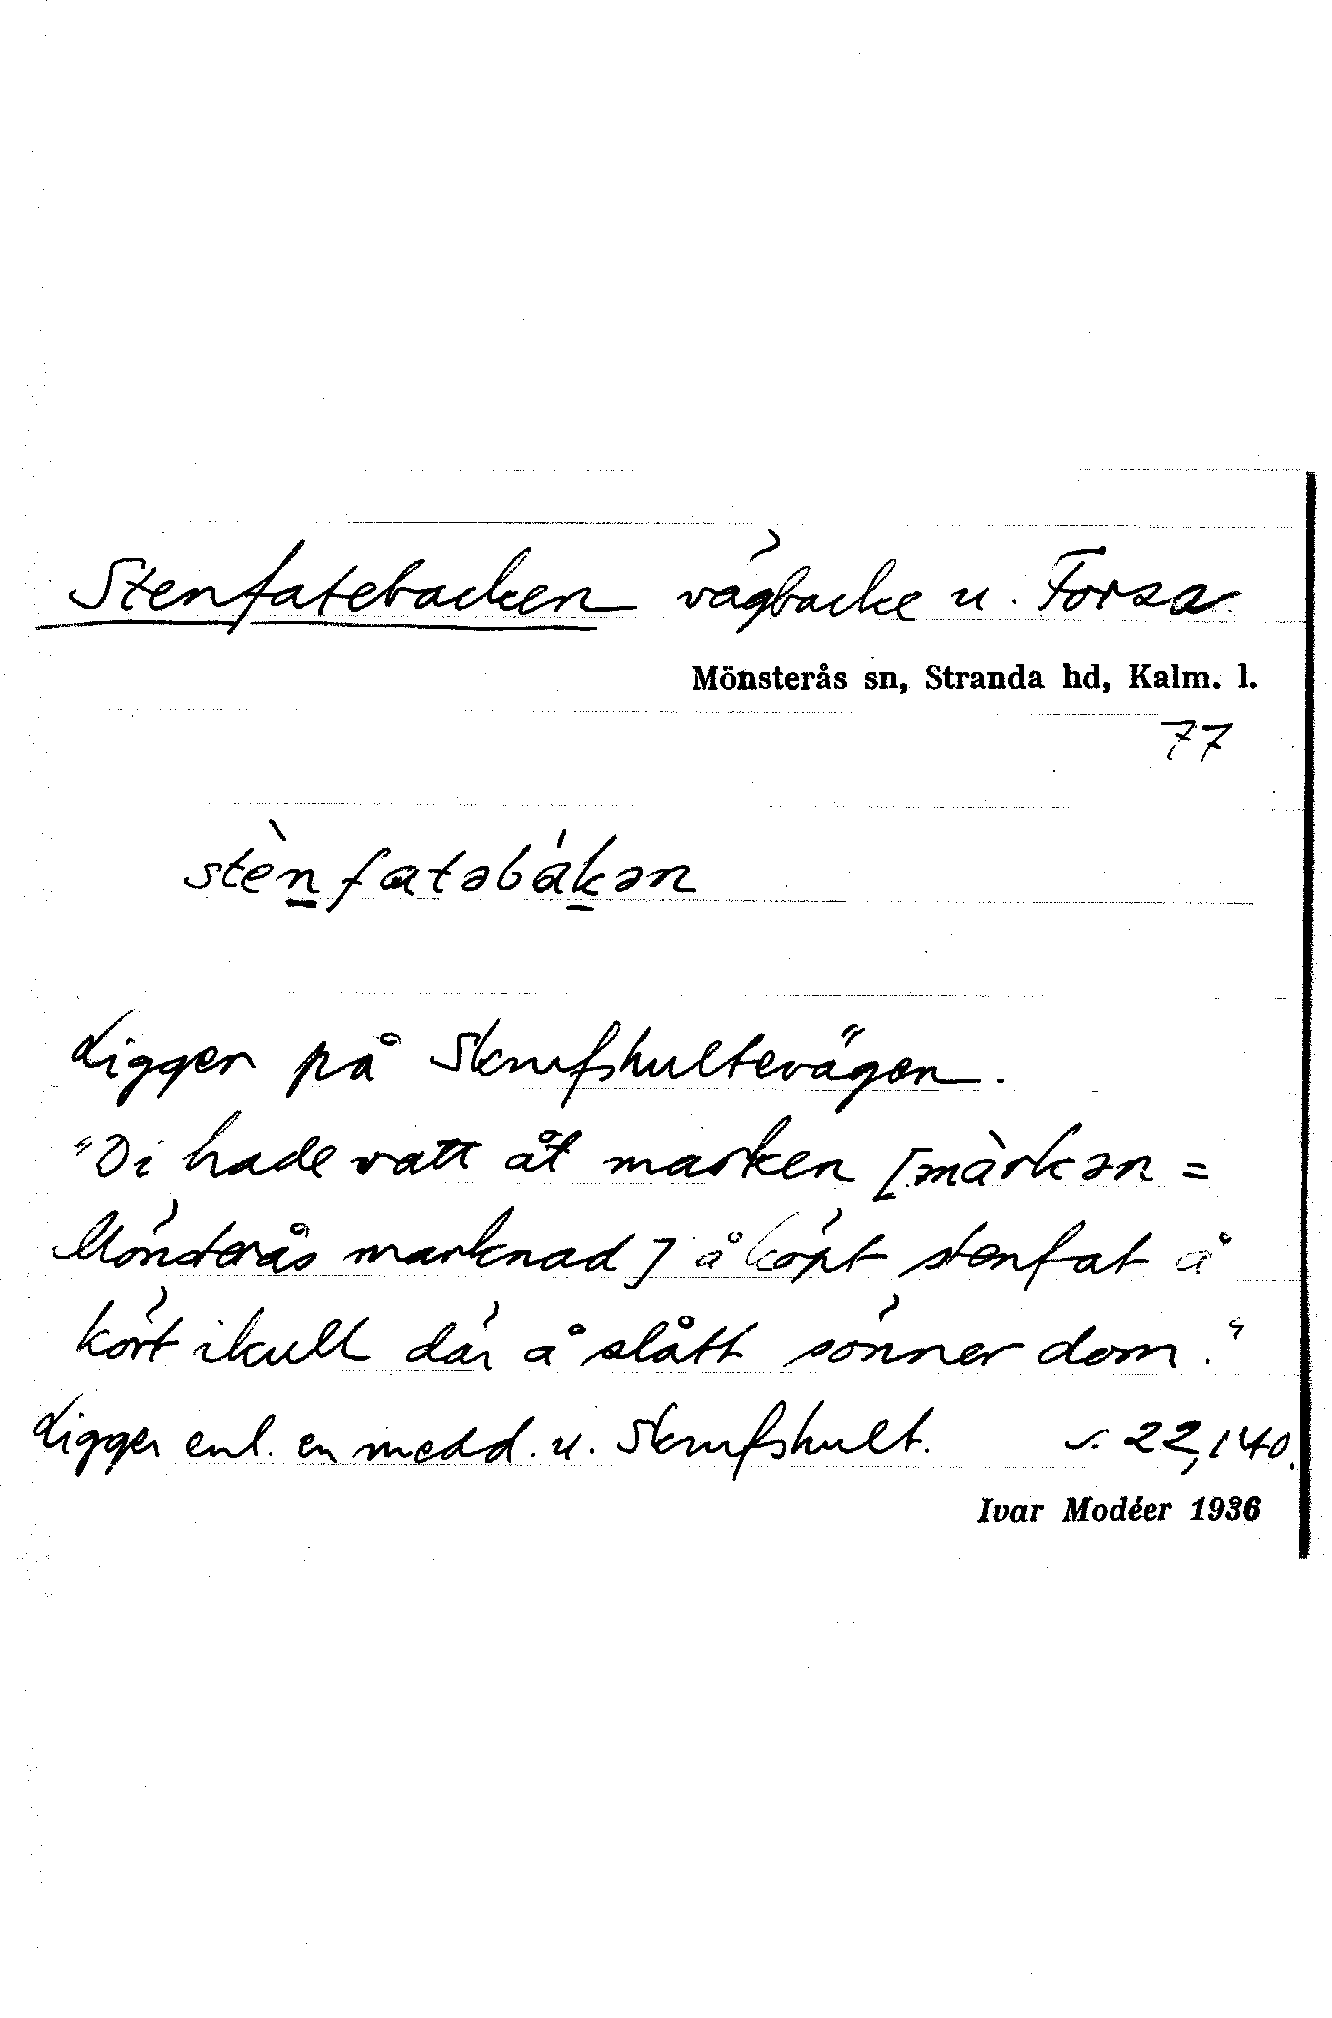 Stenfatebacken vägbacke u. Forsa
Mönsterås sn, Stranda hd, Kalm. l.
77
stènfatəbákən
Ligger på Skrufshultevägen.
"Di hade vatt åt marken [màrkən =
Mönsterås marknad] å köpt stenfat å
kört ikull där å slått sönner dom."
Ligger enl. en medd. u. Skrufshult. s. 22, 140.
Ivar Modéer 1936